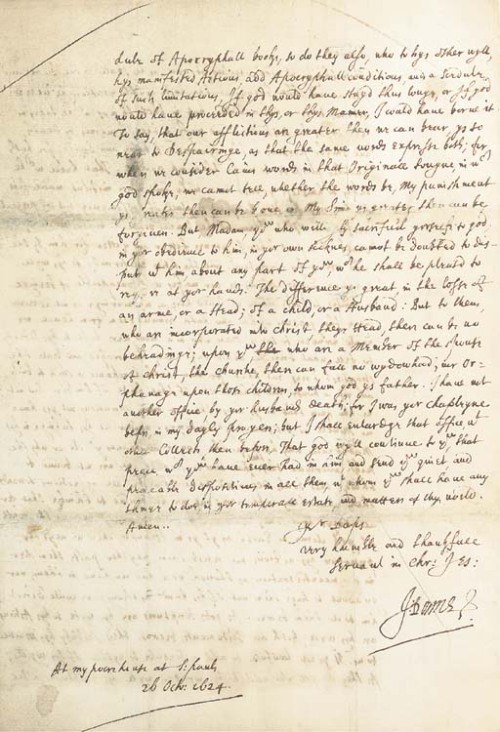 dule of Apocryphall books, so do they also, who to hys other wyll,
hys manifested Actions, add Apocryphall conditions, and a Scedule
of such limitations, If god would have stayd thus longe, or, If god
would have proceeded in thys, or thys Maner, I could have borne it.
To say, that our afflictions are greater then we can bear, ys so
near to Despairinge, as that the same words expresse both; for
when we consider Cains words in that Originall tongue in wch
god spoke, we cannot tell whether the words be, My punishment
ys greater then can be borne or My Sin ys greater then can be
forgiven. But Madam, you who willingly sacrificed yorself to god
in yor obedience to him, in yor own sicknes, cannot be doubted to dis-
pute wth him about any part of you, wch he shall be pleasd to
require at yor hands. The difference ys great, in the losse of
an arme, or a Head; of a child, or a Husband: But to them,
who are incorporated into Christ theyr Head, there can be no
beheadinge; upon you who are a Member of the Spouse
of Christ, the Churche, there can fall no wydowhead; nor Or-
phenage upon those children, to whom god ys father. I have not
another office by yor husbands death; for I was yor Chapleyne
before, in my dayly prayers; but I shall enlardge that office, wth
other Collects then before, That god wyll continue to you that
peace wch you have ever had in him and send you quiet and
peaceable dispositions in all them, wth whom you shall have any
thinge to doe in yor temporall estate, and matters of thys world.
Amen..
Yor Laps
very humble and thankfull
Servant in Chr: Jes:
J Donne
At my poore house at S: Pauls
26 Octr. 1624.